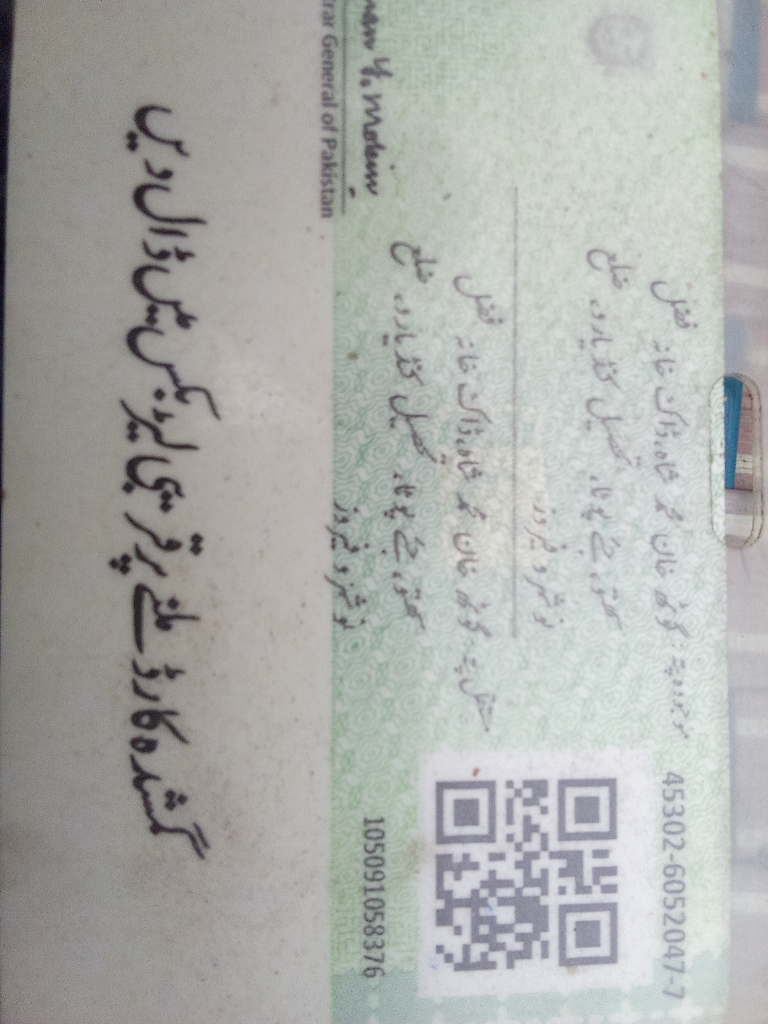 45302-6052047-7
موجودہ پتہ: گوٹھ خان محمد شاہ، ڈاک خانہ فضل
تحصیل کنڈیارو، ضلع
نوشہرو فیروز
مستقل پتہ: گوٹھ خان محمد شاہ، ڈاک خانہ فضل
تحصیل کنڈیارو، ضلع
نوشہرو فیروز
105091058376
trar General of Pakistan
گمشدہ کارڈ ملنے پر قریبی لیٹر بکس میں ڈال دیں